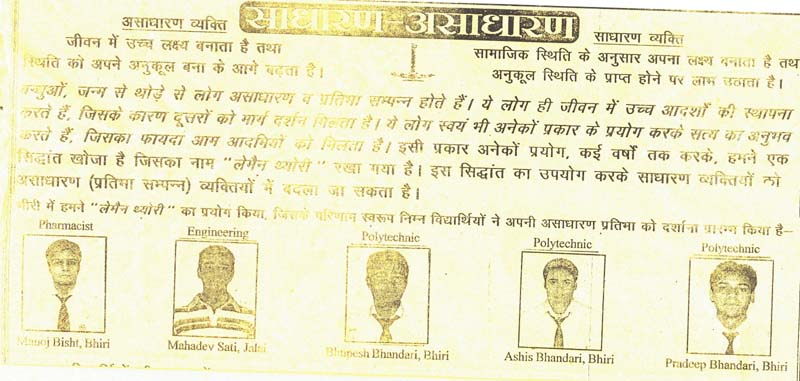 साधारण-असाधारण
असाधारण व्यक्ति
जीवन में उच्च लक्ष्य बनाता है तथा
स्थिति को अपने अनुकूल बना के आगे बढ़ता है।
साधारण व्यक्ति
सामाजिक स्थिति के अनुसार अपना लक्ष्य बनाता है तथ
अनुकूल स्थिति के प्राप्त होने पर लाभ उठाता है।
बन्धुओं, जन्म से थोड़े से लोग असाधारण व प्रतिभा सम्पन्न होते हैं। ये लोग ही जीवन में उच्च आदर्शों की स्थापना
करते हैं, जिसके कारण दूसरों को मार्ग दर्शन मिलता है। ये लोग स्वयं भी अनेकों प्रकार के प्रयोग करके सत्य का अनुभव
करते हैं, जिसका फायदा आम आदमियों को मिलता है। इसी प्रकार अनेकों प्रयोग, कई वर्षों तक करके, हमने एक
सिद्धांत खोजा है जिसका नाम "लेमैन थ्योरी" रखा गया है। इस सिद्धांत का उपयोग करके साधारण व्यक्तियों को
असाधारण (प्रतिभा सम्पन्न) व्यक्तियों में बदला जा सकता है।
भीरी में हमने "लेमैन थ्योरी" का प्रयोग किया, जिसके परिणाम स्वरूप निम्न विद्यार्थियों ने अपनी असाधारण प्रतिभा को दर्शाना प्रारम्भ किया है–
Pharmacist
Engineering
Polytechnic
Polytechnic
Polytechnic
Manoj Bisht, Bhiri
Mahadev Sati, Jalai
Bhupesh Bhandari, Bhiri
Ashis Bhandari, Bhiri
Pradeep Bhandari, Bhiri